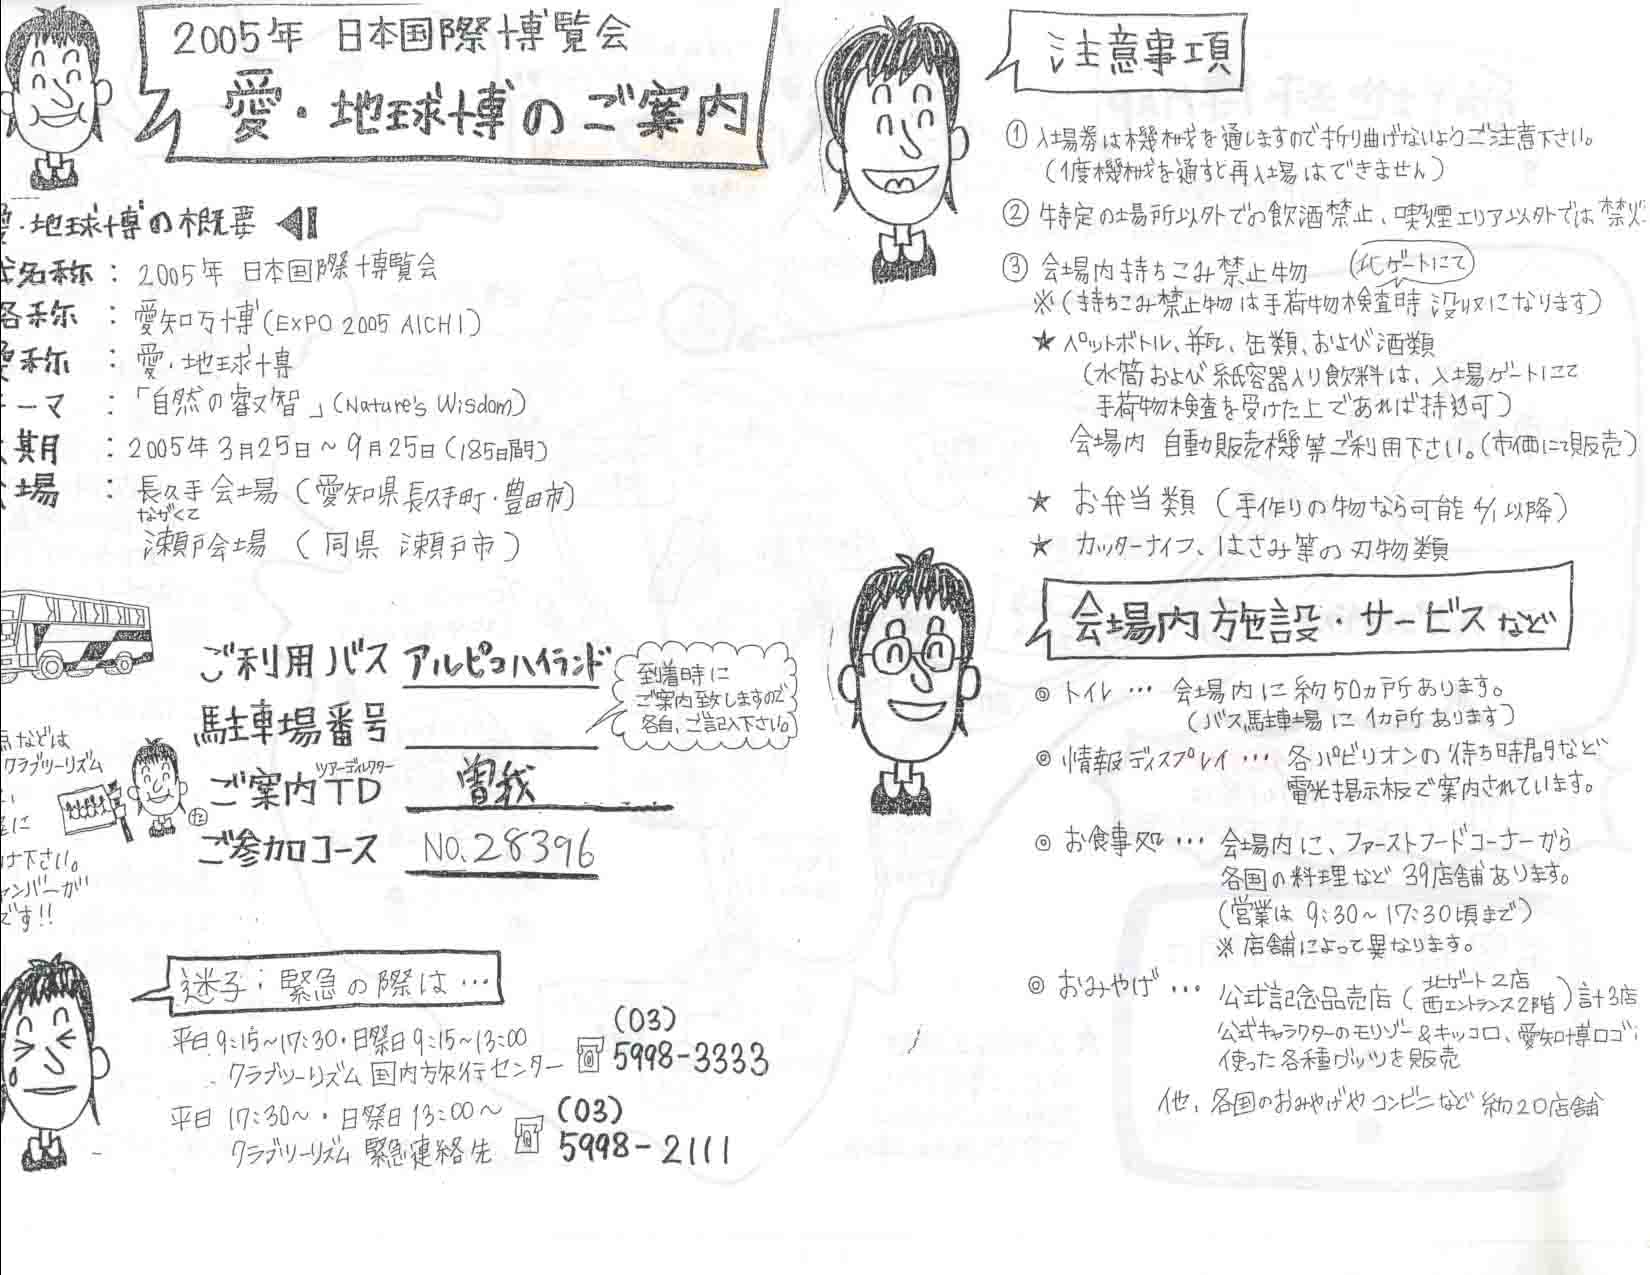 2005年 日本国際博覧会
愛・地球博のご案内
・地球博の概要
名称 : 2005年 日本国際博覧会
称 : 愛知万博(EXPO 2005 AICHI)
称 : 愛・地球博
ーマ : 「自然の叡智」(Nature's Wisdom)
期 : 2005年3月25日～9月25日(185日間)
場 : 長久手会場 (愛知県長久手町・豊田市)
ながくて
瀬戸会場 (同県 瀬戸市)
ご利用バス アルピコハイランド
駐車場番号
到着時に
ご案内致しますので
各自、ご記入下さい。
ツアーディレクター
ご案内TD 曽我
ご参加コース NO.28396
などは
クラブツーリズム
に
け下さい。
ャンバーが
です!!
迷子；緊急の際は…
平日9:15～17:30・日祭日9:15～13:00
クラブツーリズム国内旅行センター
(03)
5998-3333
平日 17:30～・日祭日13:00～
クラブツーリズム 緊急連絡先
(03)
5998-2111
注意事項
① 入場券は機械を通しますので折り曲げないようご注意下さい。
(1度機械を通すと再入場はできません)
② 特定の場所以外での飲酒禁止、喫煙エリア以外では禁火
③ 会場内持ちこみ禁止物 (北ゲートにて)
※(持ちこみ禁止物は手荷物検査時 没収になります)
★ ペットボトル、瓶、缶類、および酒類
(水筒および紙容器入り飲料は、入場ゲートにて
手荷物検査を受けた上であれば持込可)
会場内 自動販売機等ご利用下さい。(市価にて販売)
★ お弁当類 (手作りの物なら可能 4/1以降)
★ カッターナイフ、はさみ等の刃物類
会場内施設・サービスなど
◎ トイレ … 会場内に約50ヵ所あります。
(バス駐車場に1ヵ所あります)
◎ 情報ディスプレイ … 各パビリオンの待ち時間など
電光掲示板で案内されています。
◎ お食事処 … 会場内に、ファーストフードコーナーから
各国の料理など39店舗あります。
(営業は9:30～17:30頃まで)
※店舗によって異なります。
◎ おみやげ … 公式記念品売店(北ゲート2店 西エントランス2階)計3店
公式キャラクターのモリゾー&キッコロ、愛知博ロゴ
使った各種グッツを販売
他、各国のおみやげやコンビニなど約20店舗